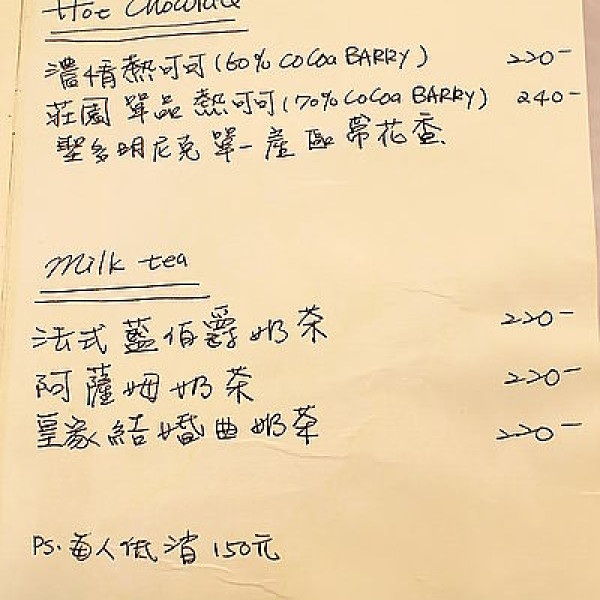 Hot Chocolate
濃情熱可可(60% COCOA BARRY) 220-
莊園單品熱可可(70% COCOA BARRY) 240-
聖多明尼克單一產區帶花香
Milk tea
法式藍伯爵奶茶 220-
阿薩姆奶茶 220-
皇家結婚曲奶茶 220-
PS. 每人低消150元